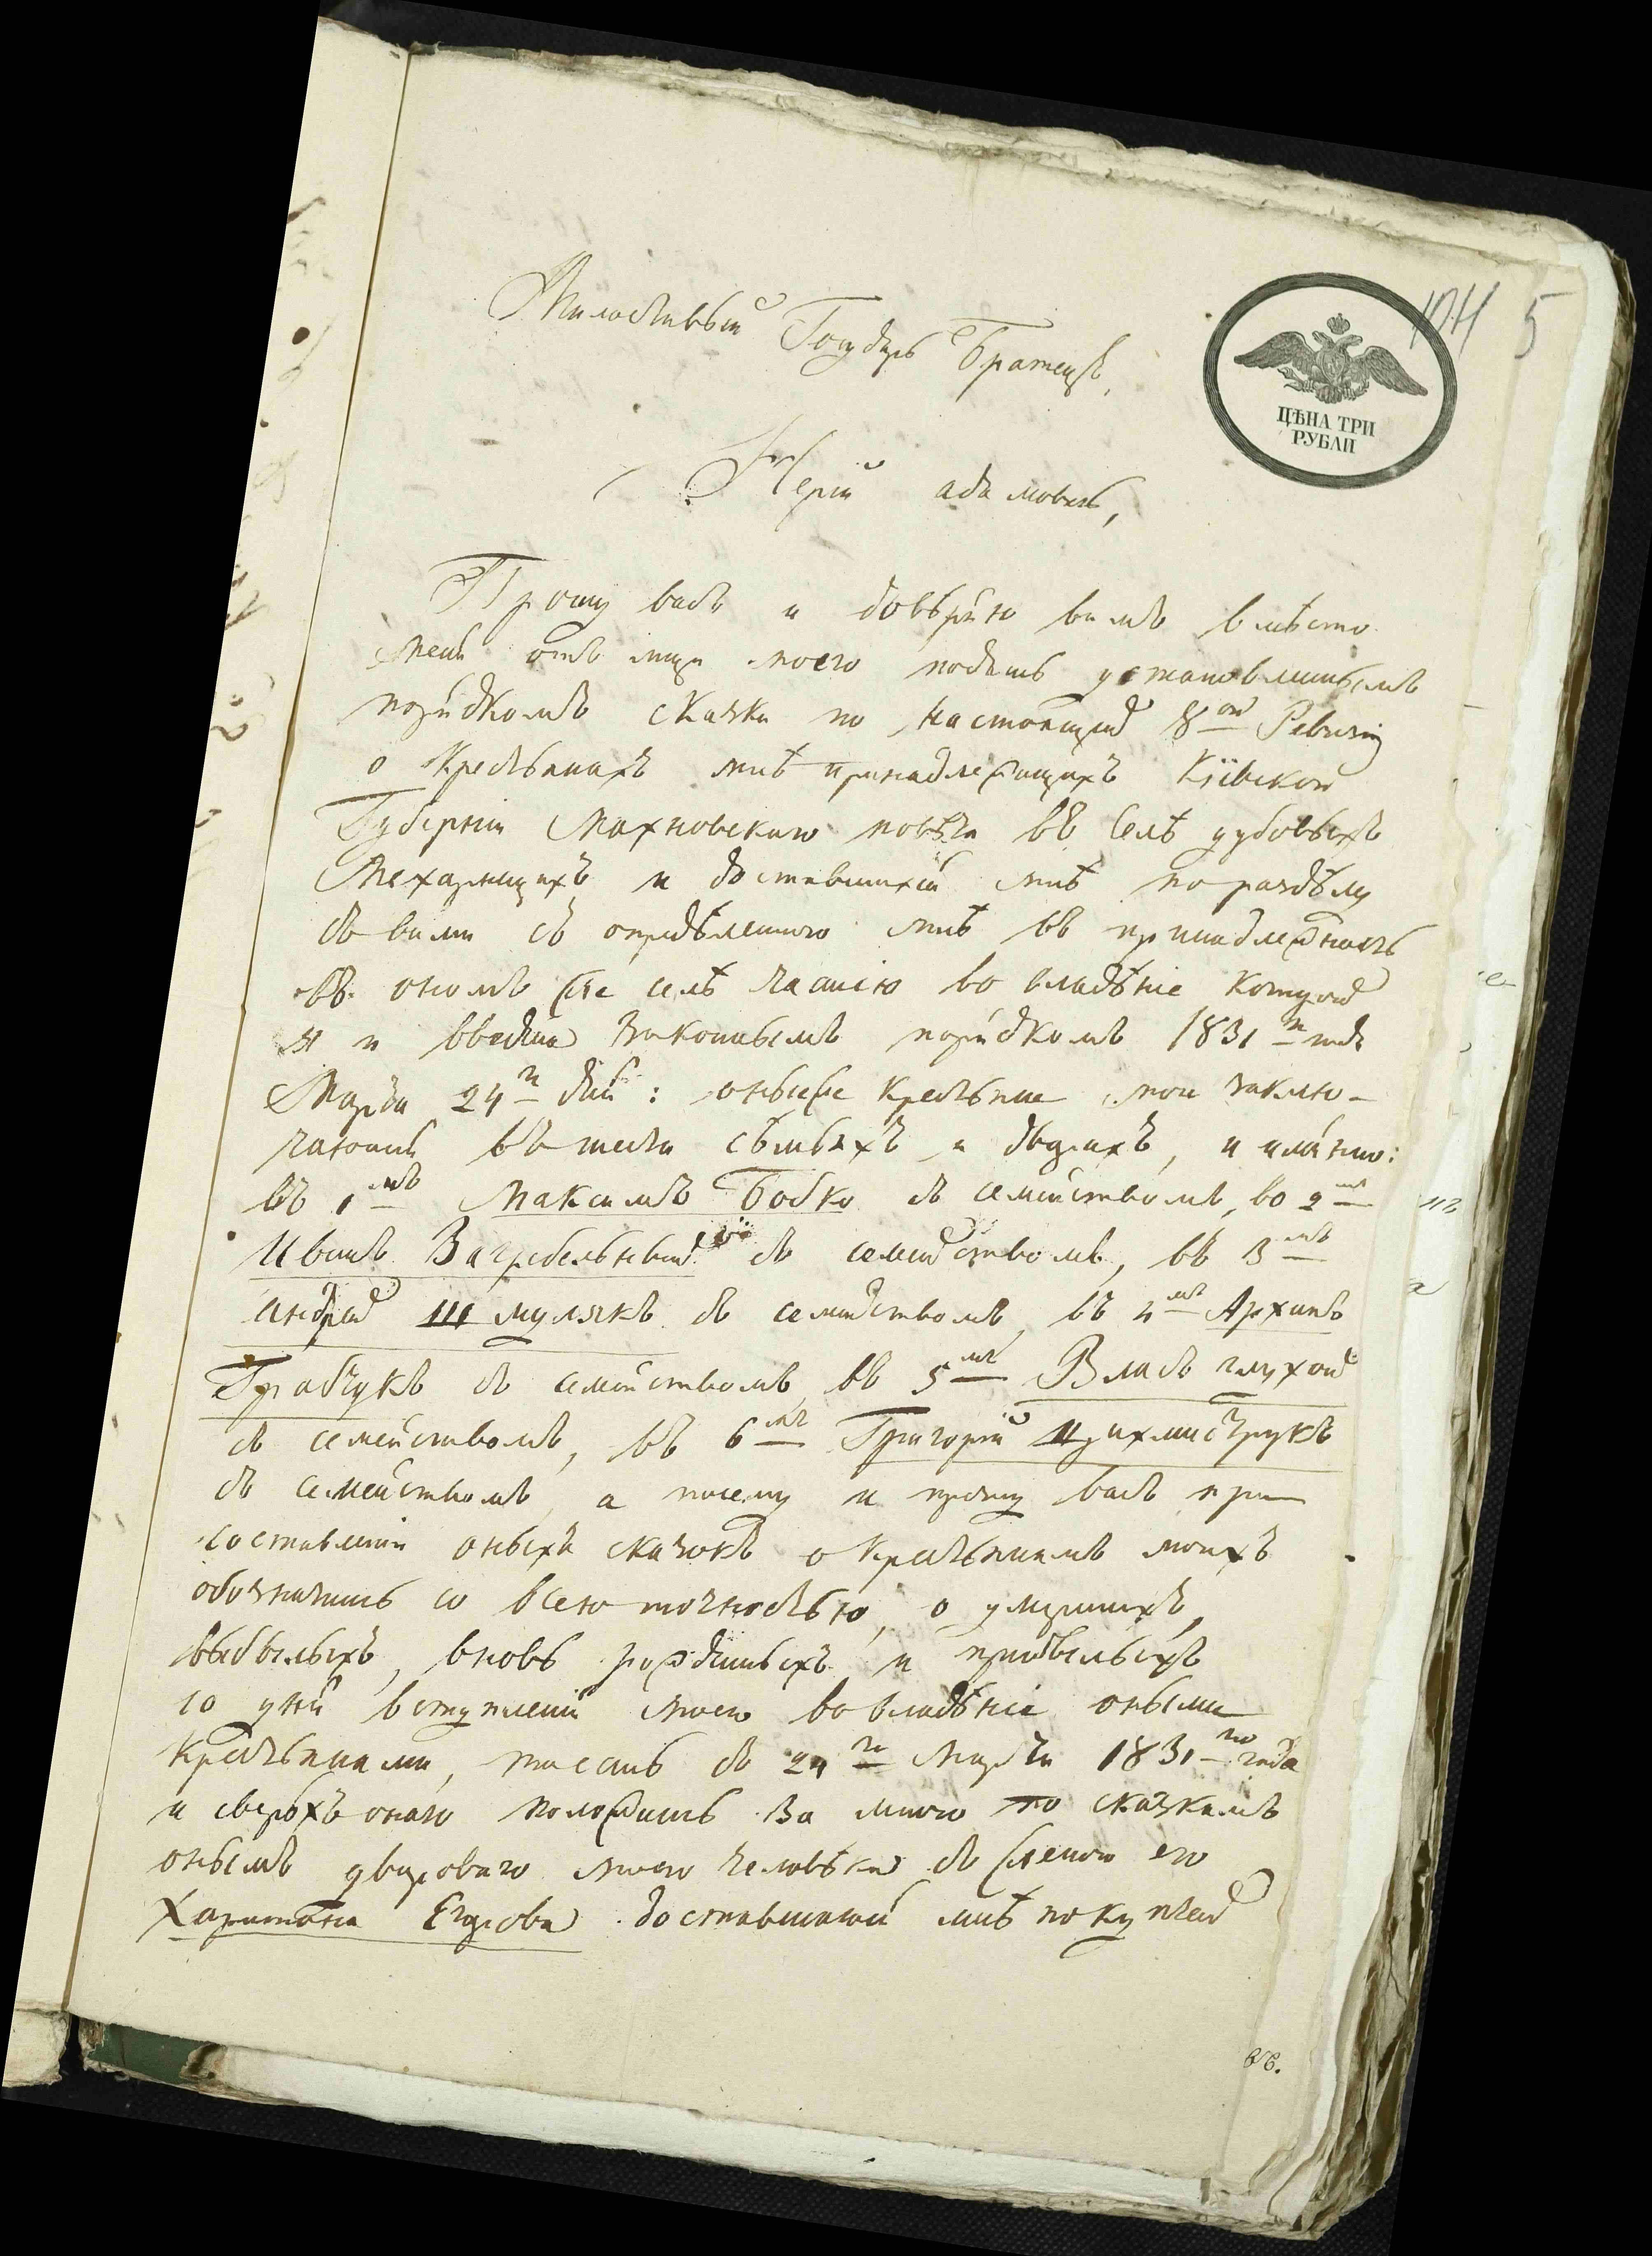 Милостивый Государь Братецъ,
ЦѢНА ТРИ
РУБЛИ
5
адамовичь,
Прошу васъ и довѣряю вамъ вмѣсто
меня отъ лица моего подать установленнымъ
порядкомъ скаски по настоящей 8ой Ревизіи
о Крестьянахъ мнѣ принадлежащихъ Кіевской
Губерніи Махновскаго повѣта въ Селѣ дубовыхъ
Махаринцахъ и доставшихся мнѣ по раздѣлу
съ вами съ опредѣленного мнѣ въ принадлежность
въ ономъ же селѣ частію во владѣніе которой
я и введена Законнымъ порядкомъ 1831го года
Марта 24го дня: оныеже крестьяне мои заклю-
чаются въ шести сѣмьяхъ и дворахъ, и имянно:
въ 1мъ Максимъ Бобко съ семействомъ, во 2мъ
Иванъ Загребельный съ семействомъ, въ 3мъ
андрей Шмулякъ съ семействомъ, въ 4мъ Архипъ
Грабчукъ съ семействомъ, въ 5мъ Власъ глухой
съ семействомъ, въ 6мъ Григорій Цихмиструкъ
съ семействомъ, а посему и прошу васъ при
составленіи оныхъ сказокъ о Крестьянамъ моихъ
обозначить со всею точностью, о умершихъ,
выбылыхъ, вновь рожденныхъ и прибылыхъ
со дня вступленія моего во владѣніе оными
Крестьянами, тоесть съ 24го Марта 1831го года
и сверхъ онаго положить За мною по сказкамъ
онымъ двороваго моего человѣка съ женою его
Харитона Егорова доставшагося мнѣ покупкей